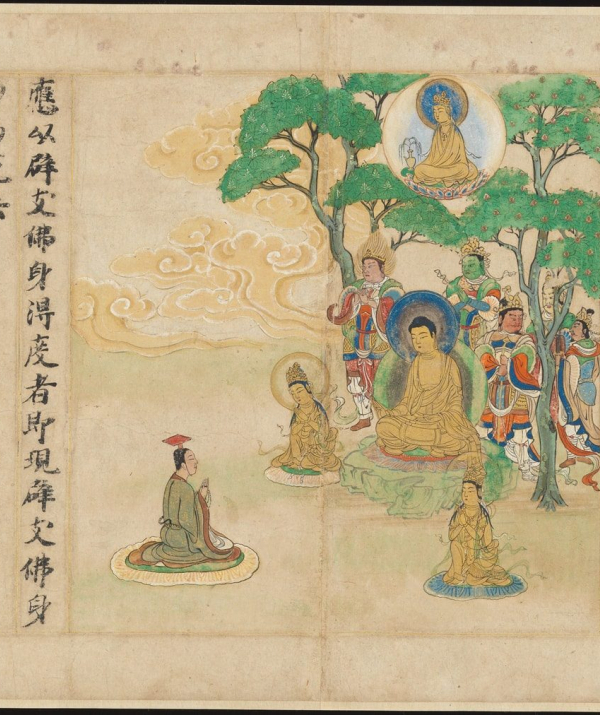 應以辟支佛身得度者即現辟支佛身